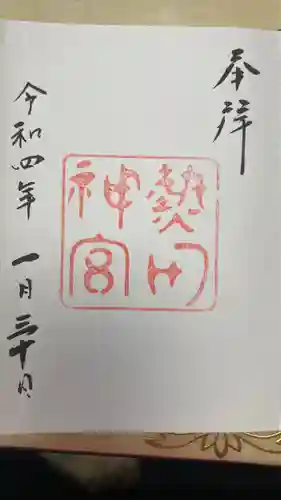 奉拝
熱田
神宮
令和四年 一月三十日